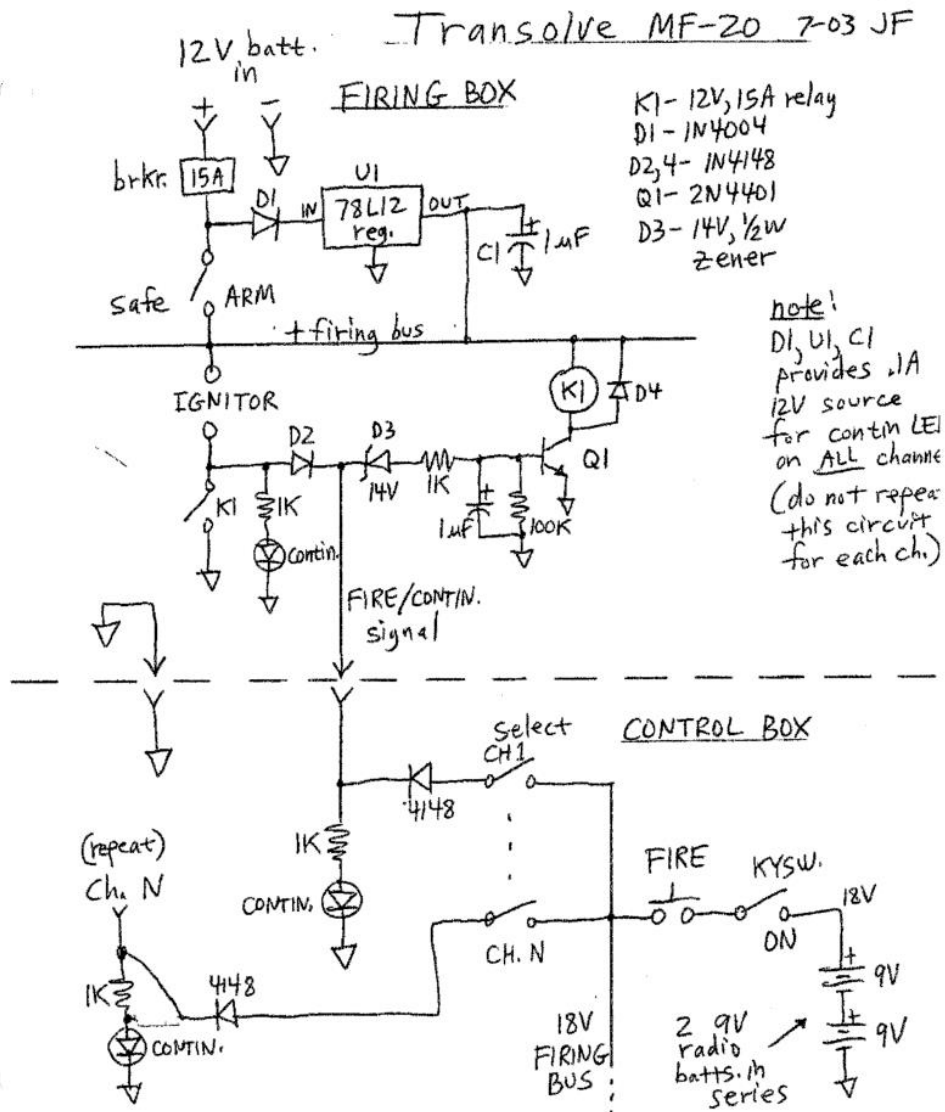 Transolve MF-20 7-03 JF
12V batt.
in
FIRING BOX
K1- 12V, 15A relay
D1- 1N4004
D2,4- 1N4148
Q1- 2N4401
D3- 14V, 1/2W
Zener
+ -
brkr. 15A
D1
IN
U1
78L12
reg.
OUT
C1 + 1uF
Safe ARM
+ firing bus
note!
D1, U1, C1
provides .1A
12V source
for contin LE
on ALL channe
(do not repea
this circuit
for each ch.)
IGNITOR
K1 D4
D2 D3
14V
1K
Q1
K1
1K
Contin.
+
1uF
100K
FIRE/CONTIN.
signal
CONTROL BOX
Select
CH1
4148
1K
CONTIN.
(repeat)
Ch. N
1K
4148
CONTIN.
CH. N
FIRE
KYSW.
ON
18V
+ 9V
+ 9V
18V
FIRING
BUS
2 9V
radio
batts. in
series